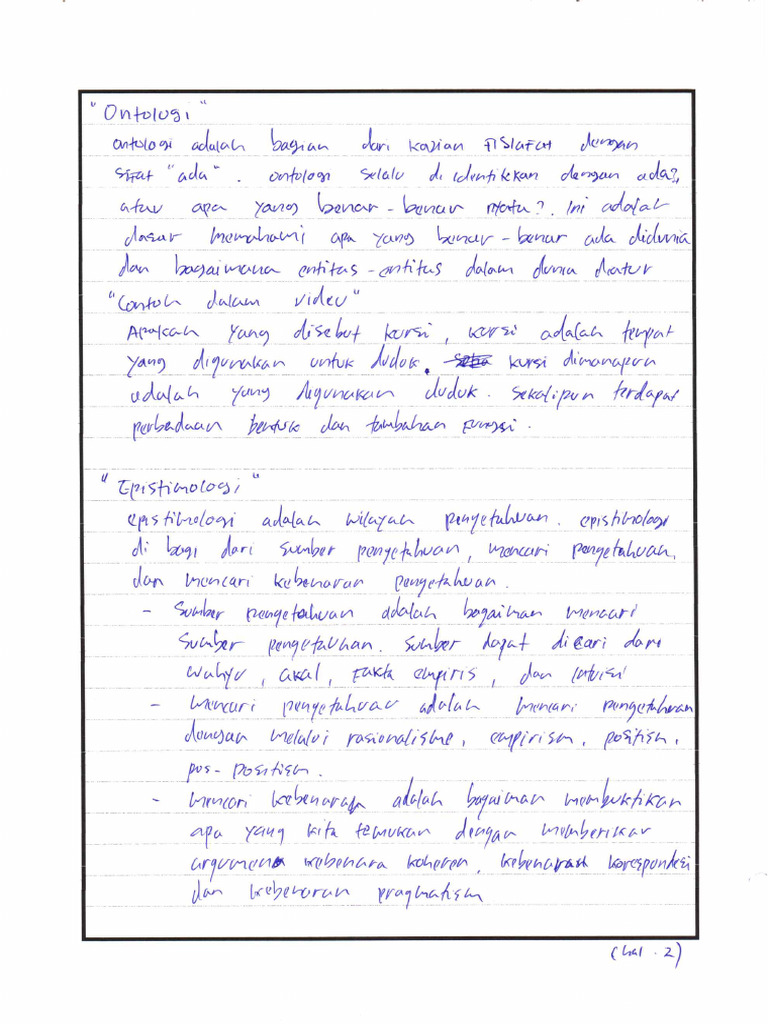 "Ontologi"
ontologi adalah bagian dari kajian filsafat dengan
sifat "ada". ontologi selalu di identikkan dengan ada?,
atau apa yang benar-benar nyata?. Ini adalah
dasar memahami apa yang benar-benar ada didunia
dan bagaimana entitas-entitas dalam dunia diatur
"Contoh dalam video"
Apakah yang disebut kursi, kursi adalah tempat
yang digunakan untuk duduk. kursi dimanapun
adalah yang digunakan duduk. sekalipun terdapat
perbedaan bentuk dan tambahan fungsi.
"Epistimologi"
epistimologi adalah wilayah pengetahuan. epistimologi
di bagi dari sumber pengetahuan, mencari pengetahuan,
dan mencari kebenaran pengetahuan.
- Sumber pengetahuan adalah bagaiman mencari
sumber pengetahuan. sumber dapat dicari dari
wahyu, akal, fakta empiris, dan intuisi
- mencari pengetahuan adalah mencari pengetahuan
dengan melalui rasionalisme, empirism, positism,
pos-positism.
- mencari kebenaran adalah bagaiman membuktikan
apa yang kita temukan dengan memberikan
argumen kebenara koheren, kebenaran korespondesi
dan kebenaran pragmatism
(hal. 2)